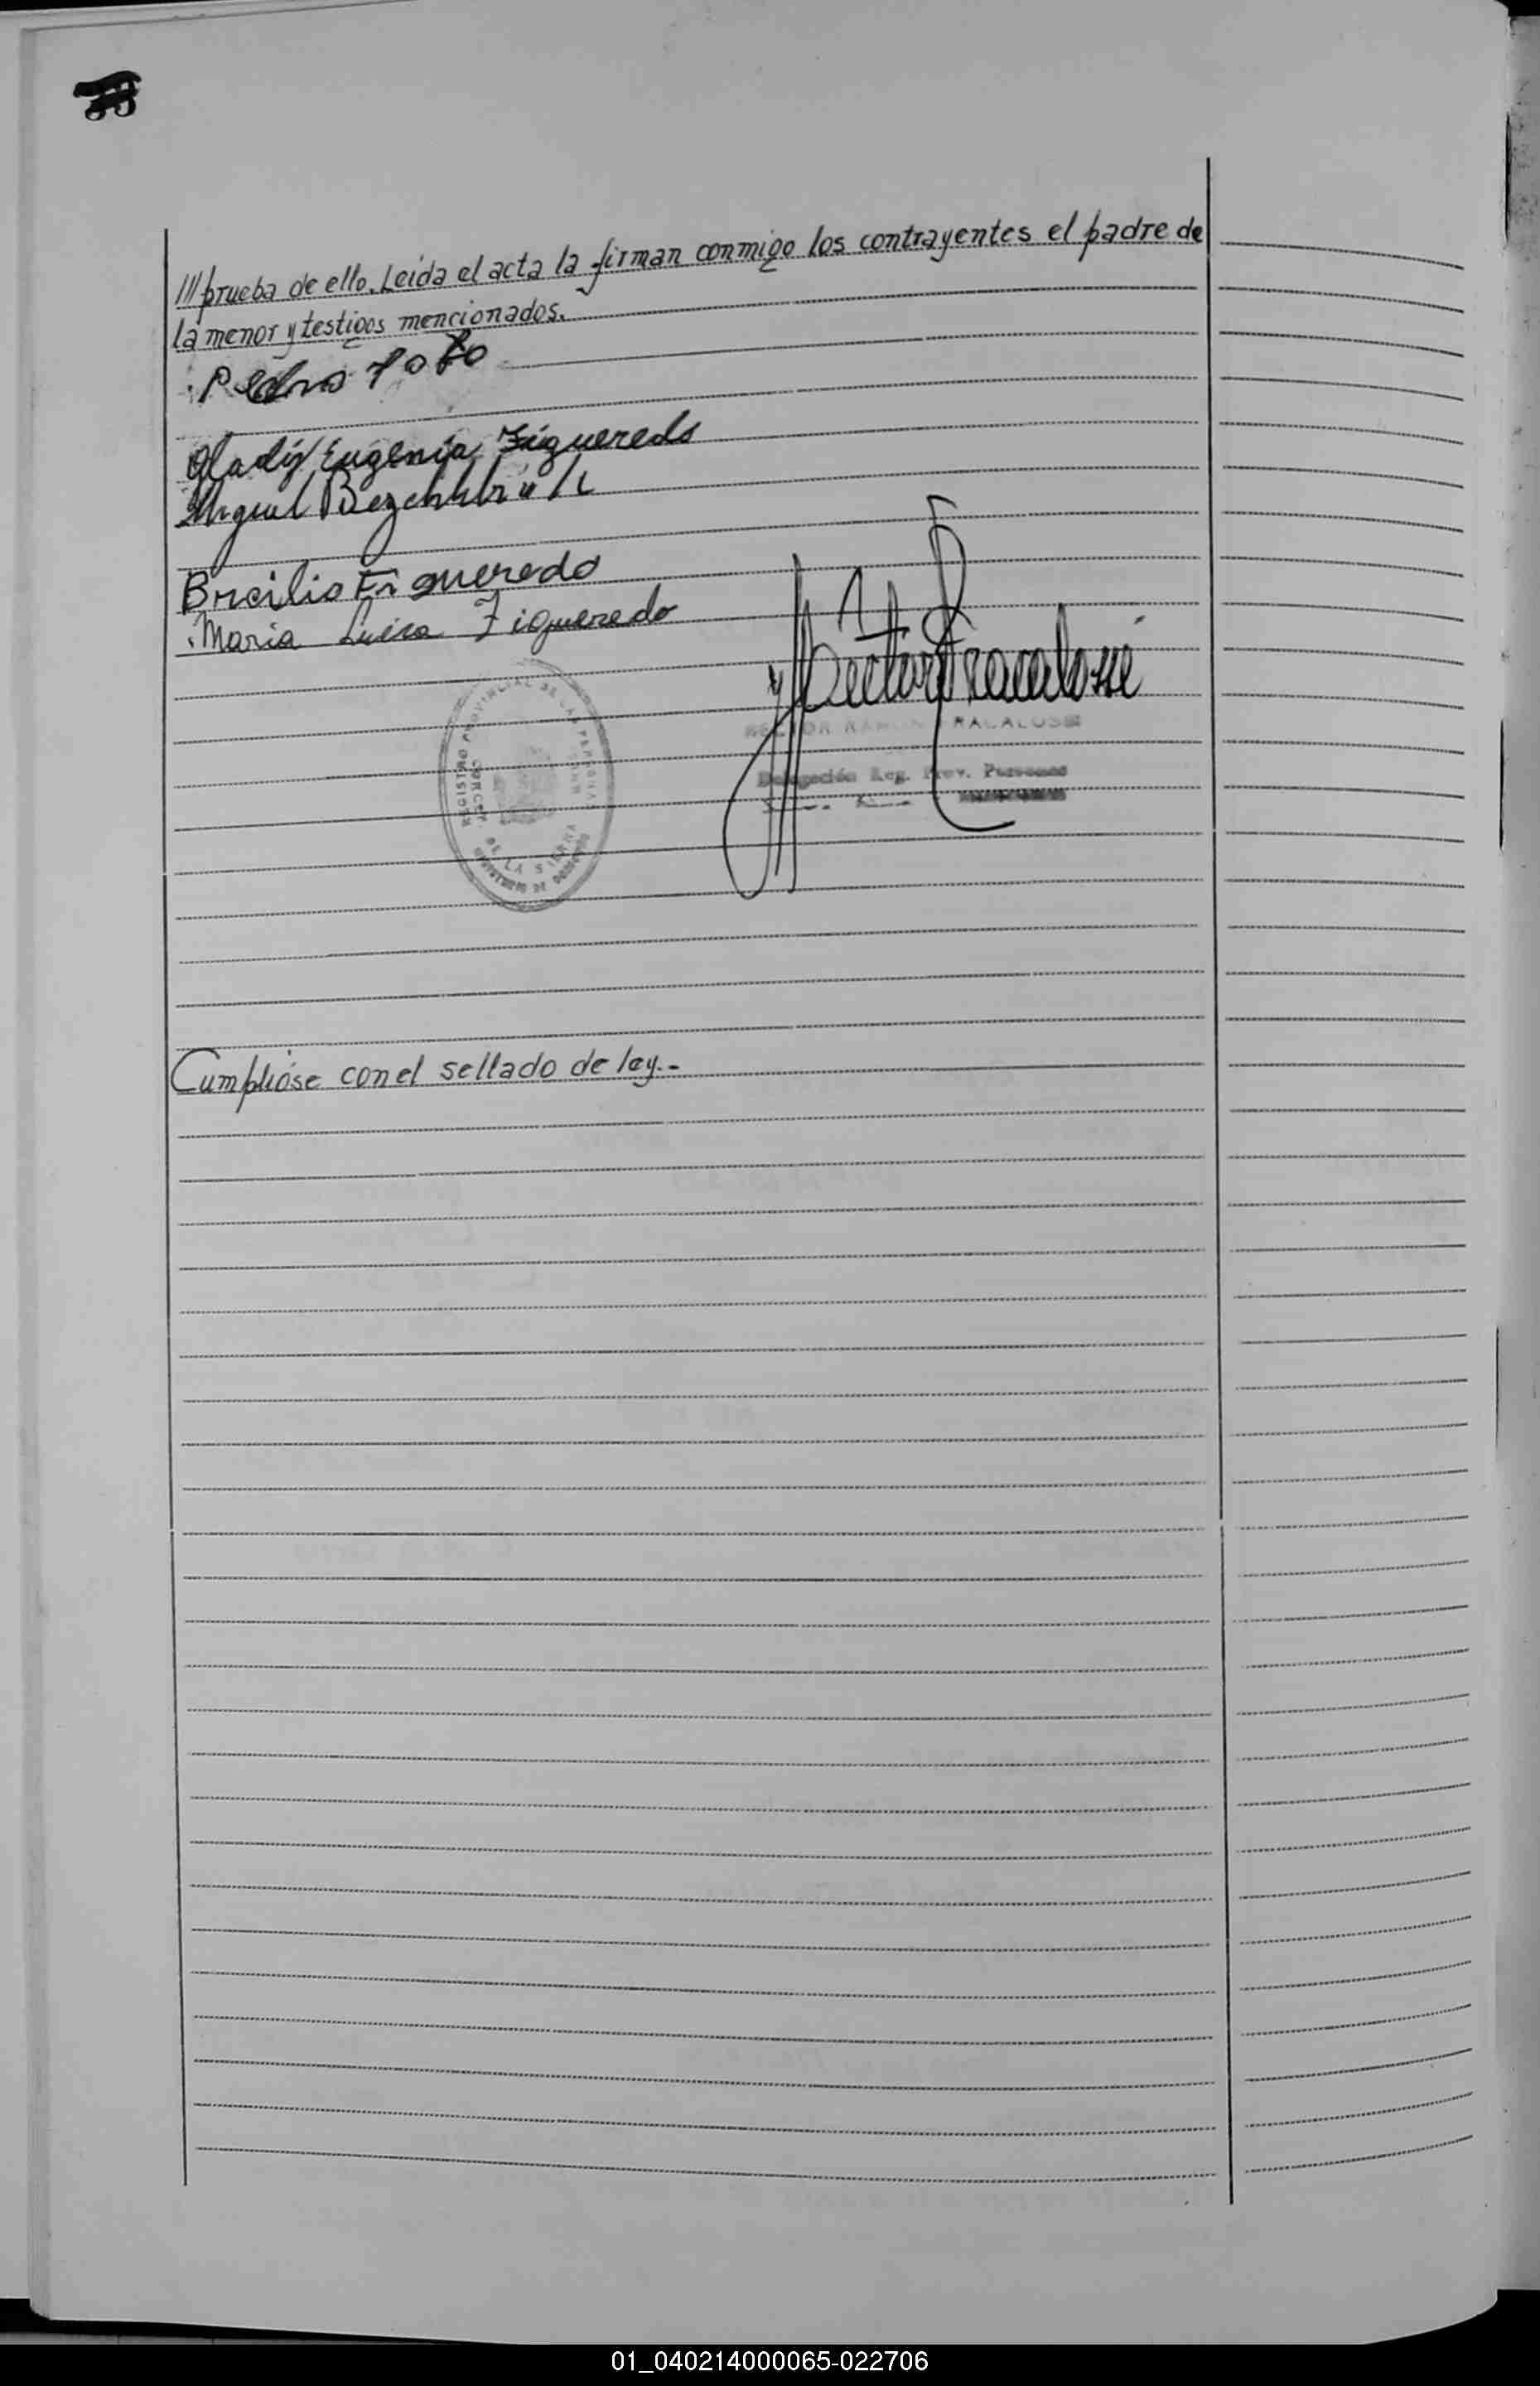 /// prueba de ello. Leida el acta la firman conmigo los contrayentes el padre de
la menor y testigos mencionados.
Pedro
Gladis Eugenia Figueredo
Miguel
Brcilio Figueredo
Maria Luisa Figueredo
Hector Fracalossi
HECTOR RAMON FRACALOSSI
Delegación Reg. Prov. Personas
REGISTRO PROVINCIAL DE LAS PERSONAS
DE LA SIERRA
MINISTERIO DE GOBIERNO
Cumplióse con el sellado de ley.-
01_040214000065-022706